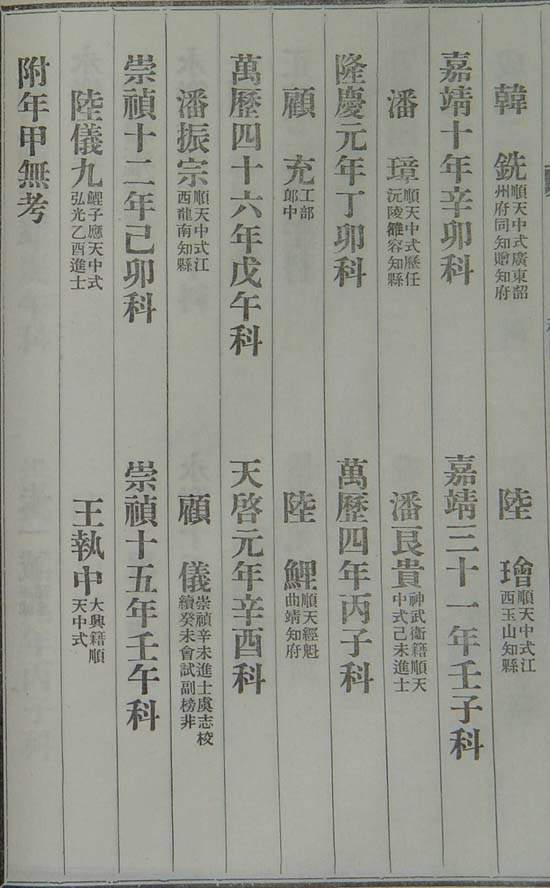 韓　銑 順天中式廣東韶州府同知贈知府
陸　璯 順天中式江西玉山知縣
嘉靖十年辛卯科
嘉靖三十一年壬子科
潘　璋 順天中式歷任沅陵雒容知縣
潘艮貴 神武衛籍順天中式己未進士
隆慶元年丁卯科
萬歷四年丙子科
顧　充 工部郎中
陸　鯉 順天經魁曲靖知府
萬歷四十六年戊午科
天啓元年辛酉科
潘振宗 順天中式江西龍南知縣
顧　儀 崇禎辛未進士虞志校續癸未會試副榜非
崇禎十二年己卯科
崇禎十五年壬午科
陸儀九 鯉子應天中式弘光乙酉進士
王執中 大興籍順天中式
附年甲無考